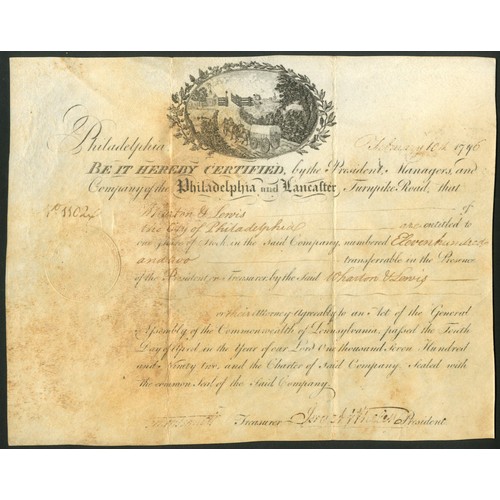 Philadelphia February 10th 1796
BE IT HEREBY CERTIFIED, by the President, Managers, and
Company of the Philadelphia and Lancaster Turnpike Road, that
No. 1102 Wharton & Lewis of
the City of Philadelphia are entitled to
one Share of Stock in the Said Company, numbered Eleven hundred
and two transferable in the Presence
of the President, or Treasurer, by the Said Wharton & Lewis
or their Attorney Agreeably to an Act of the General
Assembly of the Commonwealth of Pennsylvania, passed the Tenth
Day of April in the Year of our Lord One thousand Seven Hundred
and Ninety two, and the Charter of Said Company. Sealed with
the common Seal of the Said Company.
Treasurer President